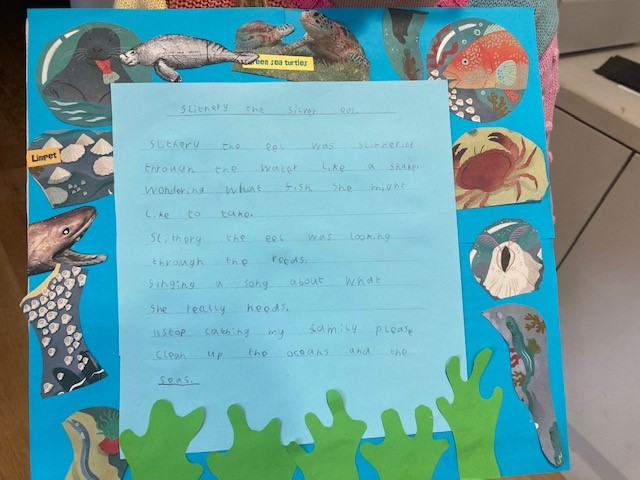 Green sea turtles
Limpet
Slithery the silver eel.
Slithery the eel was slithering
through the water like a snake.
Wondering what fish she might
like to take.
Slithery the eel was looking
through the reeds.
Singing a song about what
she really needs.
"stop catching my family please
clean up the oceans and the
seas.